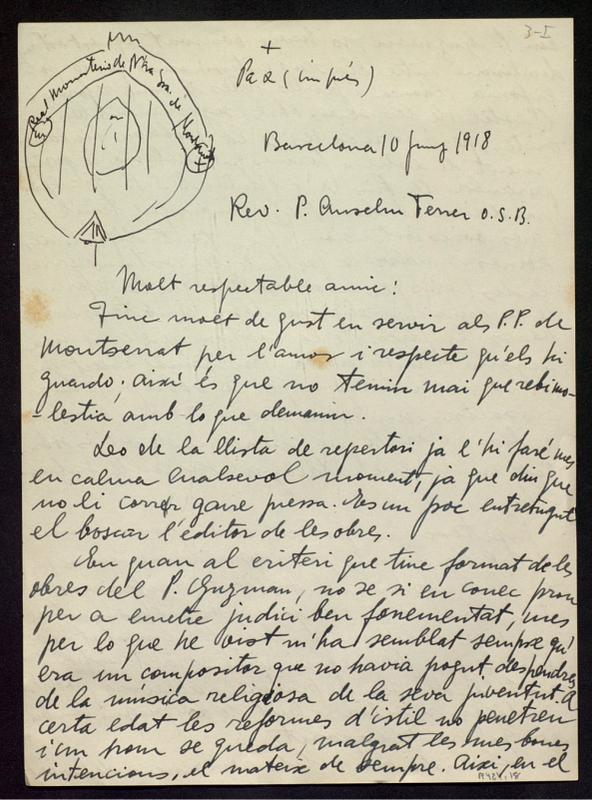 3-I
Real Monasterio de Ntra Sra. de Montserrat
+
Pax (imprés)
Barcelona 10 juny 1918
Rev. P. Anselm Ferrer O.S.B.
Molt respectable amic:
Tinc molt de gust en servir als P.P. de
Montserrat per l'amor i respecte qu'els hi
guardo; així és que no temin mai que rebi mo-
-lestia amb lo que demanin.
Leo de la llista de repertori ja l'hi faré mes
en calma cualsevol moment, ja que diu que
no li corre gaire pressa. Es un poc entretingut
el boscar l'editor de les obres.
En quan al criteri que tinc format de les
obres del P. Guzman, no se si en conec prou
per a emetre judici ben fonementat, mes
per lo que he vist m'ha semblat sempre qu'
era un compositor que no havia pogut despendres
de la música religiosa de la seva juventut. A
certa edat les reformes d'istil no penetren
i'un hom se queda, malgrat les mes bones
intencions, el mateix de sempre. Aixi, en el